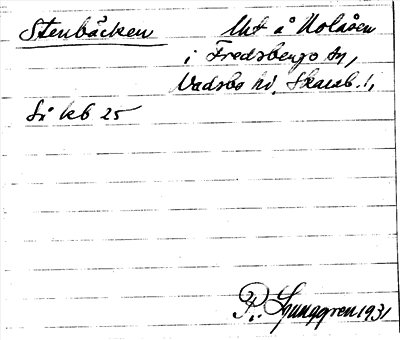 Stenbäcken Utt å Nolåsen
i Fredsbergs sn,
Vadsbo hd, Skarab. l,
Si kb 25
P. Ljunggren 1931